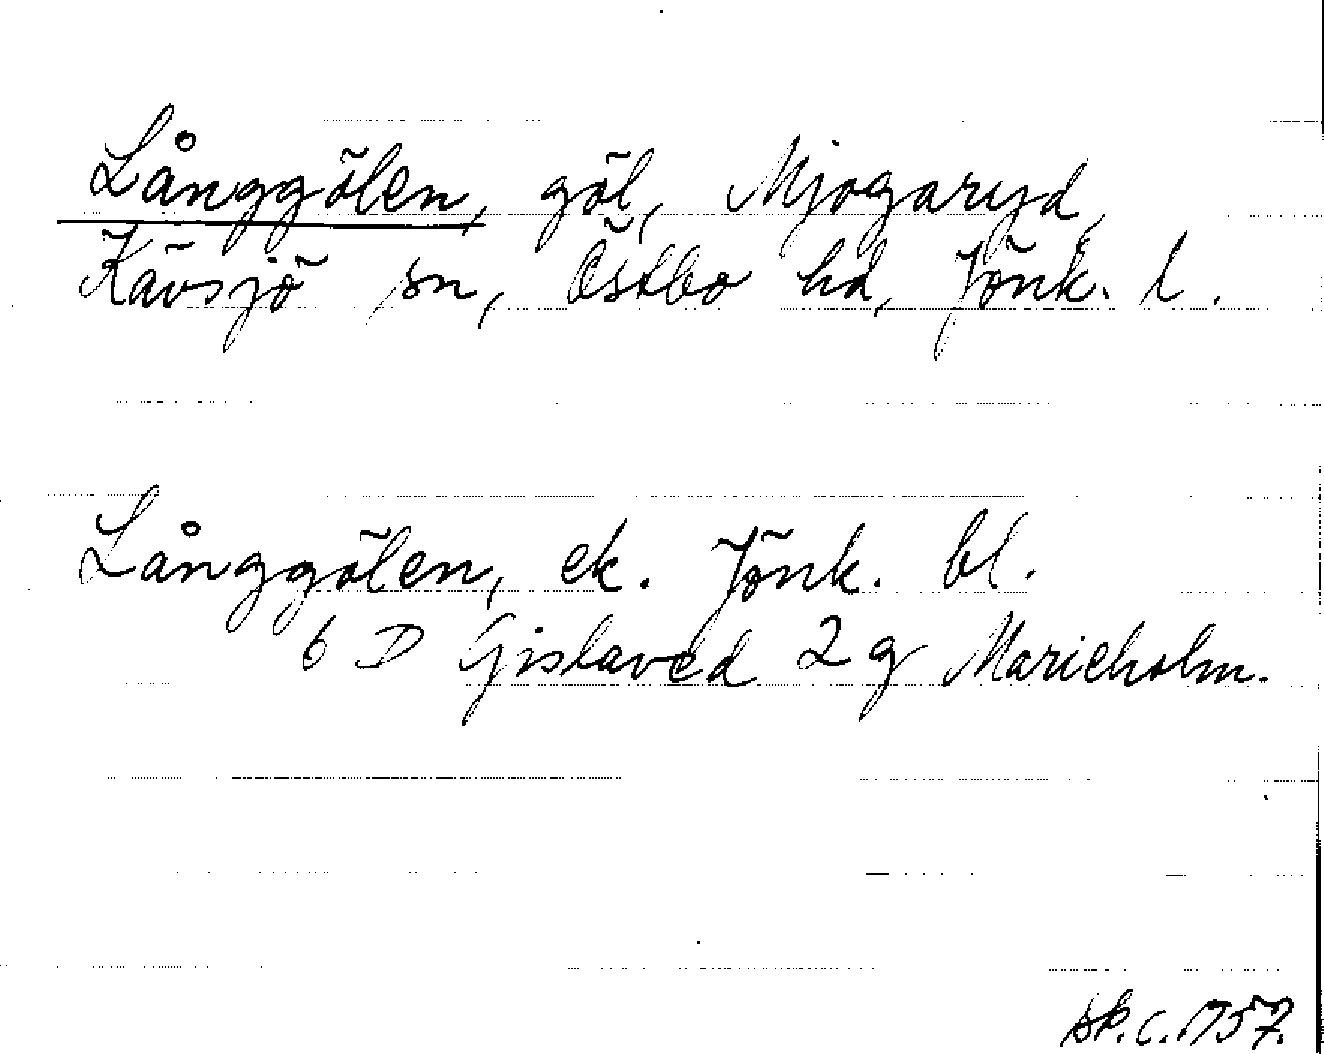 Långgölen, göl, Mjogaryd,
Kävsjö sn, Östbo hd, Jönk. l.
Långgölen, ek. Jönk. bl.
6 D Gislaved 2 g Marieholm.
sk. c. 1757.